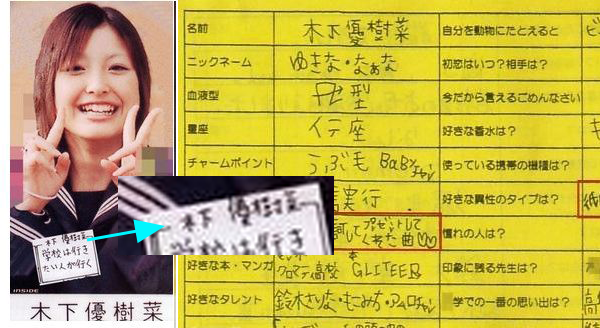 木下優樹菜
学校は行き
たい人が行く
INSIDE
木下優樹菜
木下 優樹菜
学校は行き
名前
木下優樹菜
自分を動物にたとえると
ニックネーム
ゆきな・なぁな
初恋はいつ?相手は?
血液型
型
今だから言えるごめんなさい
星座
座
好きな香水は?
チャームポイント
うぶ毛
使っている携帯の機種は?
実行
好きな異性のタイプは?
してプレゼントして
くれた曲♡♡
憧れの人は?
好きな本・マンガ
クロマティ高校 GLITTER
印象に残る先生は?
好きなタレント
鈴木さりな・もこみち・アムロちゃん
学での一番の思い出は?